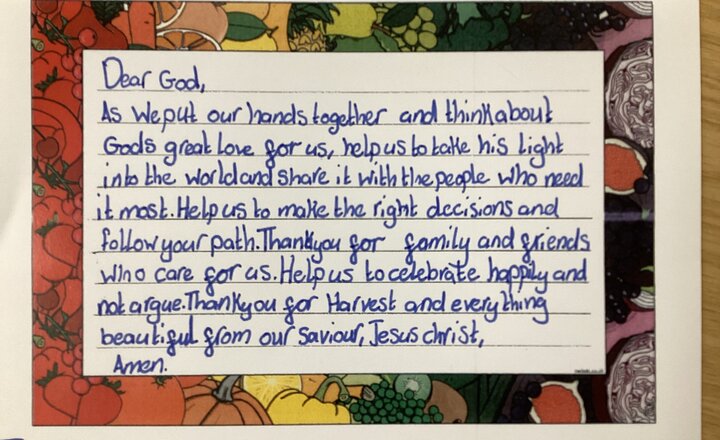 Dear God,
As we put our hands together and think about
Gods great love for us, help us to take his light
into the world and share it with the people who need
it most. Help us to make the right decisions and
follow your path. Thankyou for family and friends
who care for us. Help us to celebrate happily and
not argue. Thankyou for Harvest and everything
beautiful from our saviour, Jesus christ,
Amen.